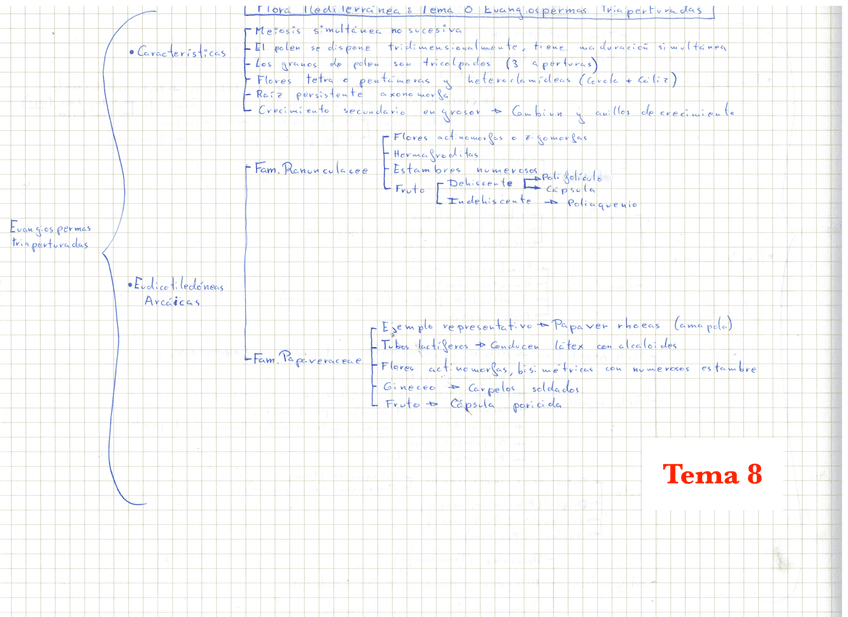 Flora Mediterránea: Tema 8 Evangiospermas Triaperturadas
• Características
Meiosis simultánea no sucesiva
El polen se dispone tridimensionalmente, tiene maduración simultánea
Los granos de polen son tricolpados (3 aperturas)
Flores tetra o pentámeras y heteroclamídeas (Corola + Cáliz)
Raíz persistente axonomorfa
Crecimiento secundario en grosor → Cambium y anillos de crecimiento
Evangiospermas
triaperturadas
• Eudicotiledóneas
Arcáicas
Fam. Ranunculaceae
Flores actinomorfas o zigomorfas
Hermafroditas
Estambres numerosos
Fruto
Dehiscente → Polifolículo
→ Cápsula
Indehiscente → Poliaquenio
Fam. Papaveraceae
Ejemplo representativo → Papaver rhoeas (amapola)
Tubos lactíferos → Conducen látex con alcaloides
Flores actinomorfas, bisimétricas con numerosos estambre
Gineceo → Carpelos soldados
Fruto → Cápsula poricida
Tema 8